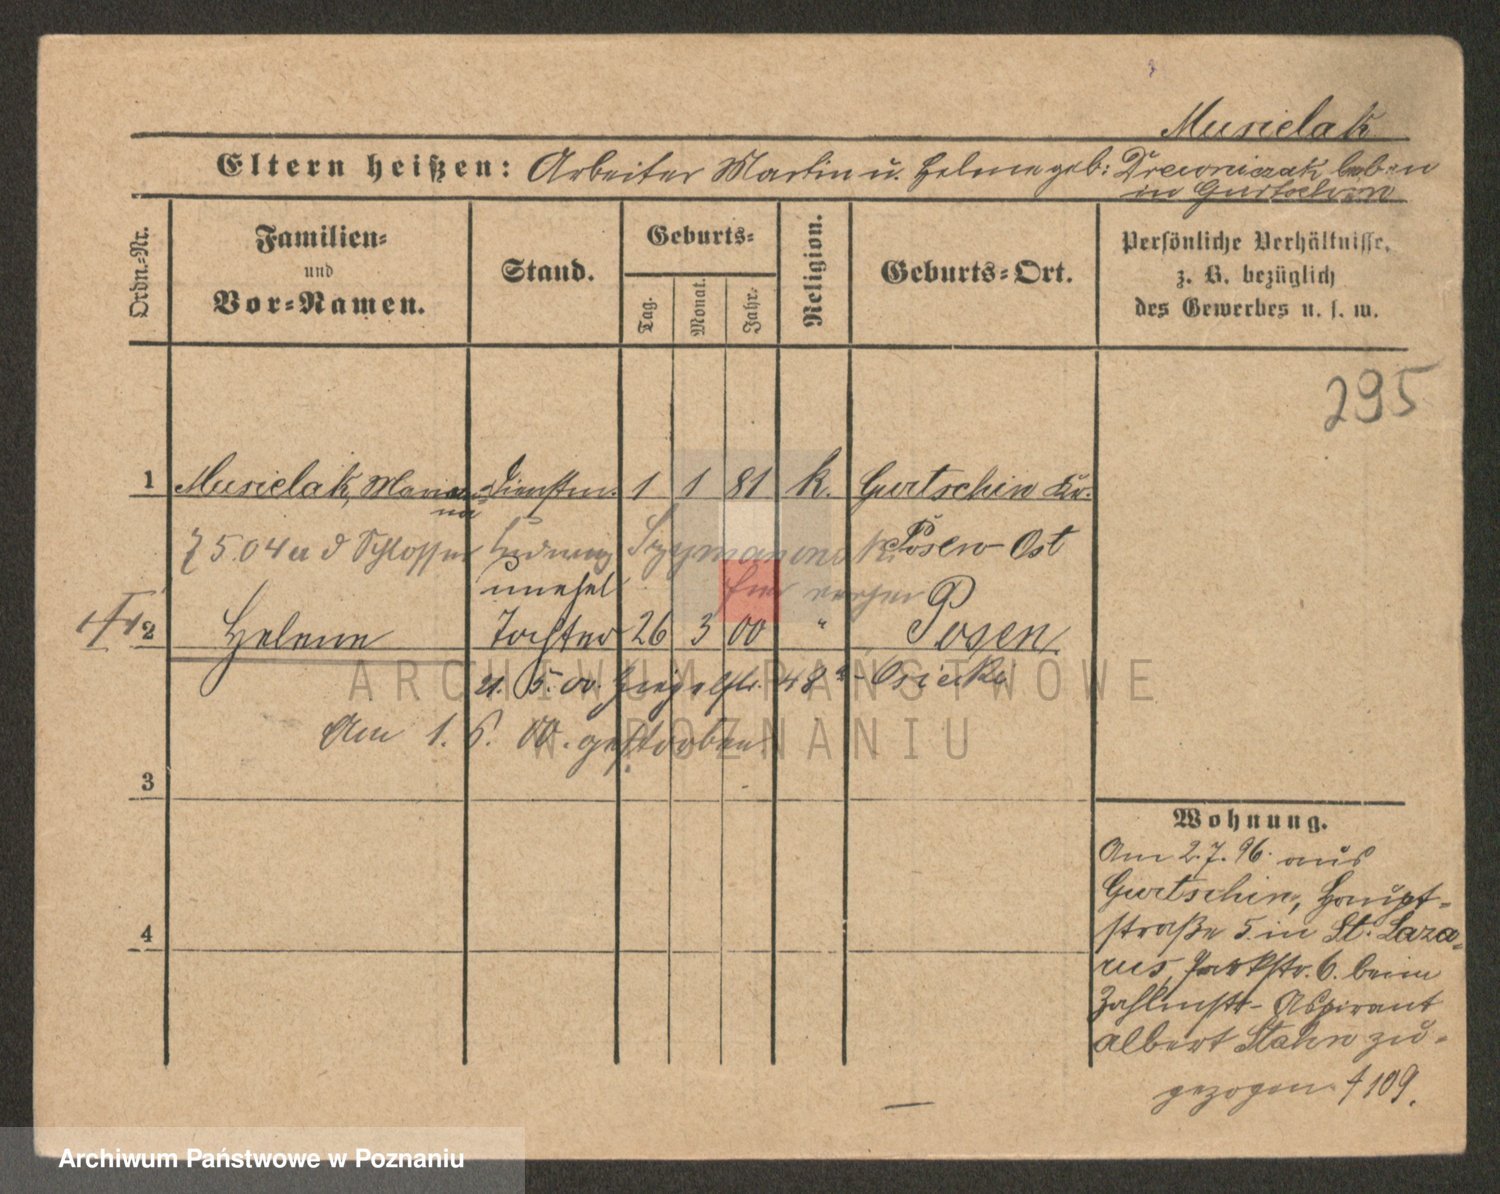 Musielak
Eltern heißen: Arbeiter Martin u. Helene geb: Drewniczak leben
in Gurtschin
Ordn.-Nr.
Familien-
und
Vor-Namen.
Stand.
Geburts-
Tag.
Monat.
Jahr.
Religion.
Geburts-Ort.
Persönliche Verhältnisse,
z. B. bezüglich
des Gewerbes u. s. w.
295
1 Musielak, Marian Dienstm. 1 1 81 k. Gurtschin Kr.
na
7 5. 04 a d Schlosser Ludwig Szymanowski Posen Ost
unehel. hier
2 Helene Tochter 26 3 00 " Posen
21. 5. 00. Ziegelstr. 48 Osiecka
Am 1. 6. 00. gestorben
3
4
Wohnung.
Am 2.7.96. aus
Gurtschin, Haupt-
straße 5. in St. Laza-
rus, Parkstr. 6. beim
Zahlmstr-Aspirant
Albert Stahn zu-
gezogen. 109.
ARCHIWUM PAŃSTWOWE
W POZNANIU
Archiwum Państwowe w Poznaniu